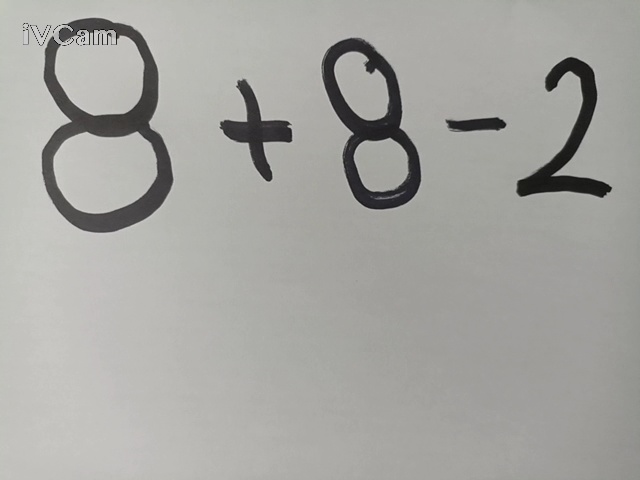 iVCam
8 + 8 - 2